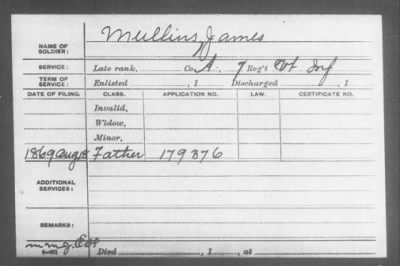 NAME OF SOLDIER: Mullins, James
SERVICE: Late rank, Co. A, 7 Reg't Vt Inf
TERM OF SERVICE: Enlisted , 1 Discharged , 1
DATE OF FILING. CLASS. APPLICATION NO. LAW. CERTIFICATE NO.
Invalid,
Widow,
Minor,
1869 Aug 18 Father 179376
ADDITIONAL SERVICES:
REMARKS:
Died , 1 , at